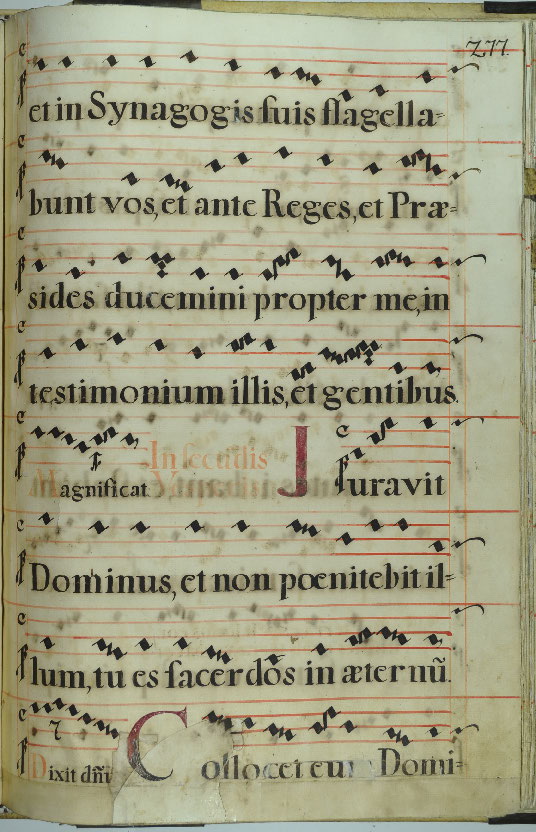 277.
et in Synagogis suis flagella=
bunt vos, et ante Reges, et Præ=
sides ducemini propter me, in
testimonium illis, et gentibus.
Magnificat. In secundis Juravit
Dominus, et non pœnitebit il=
lum, tu es sacerdos in æternũ.
7
Dixit dñi Collocet eum Domi=